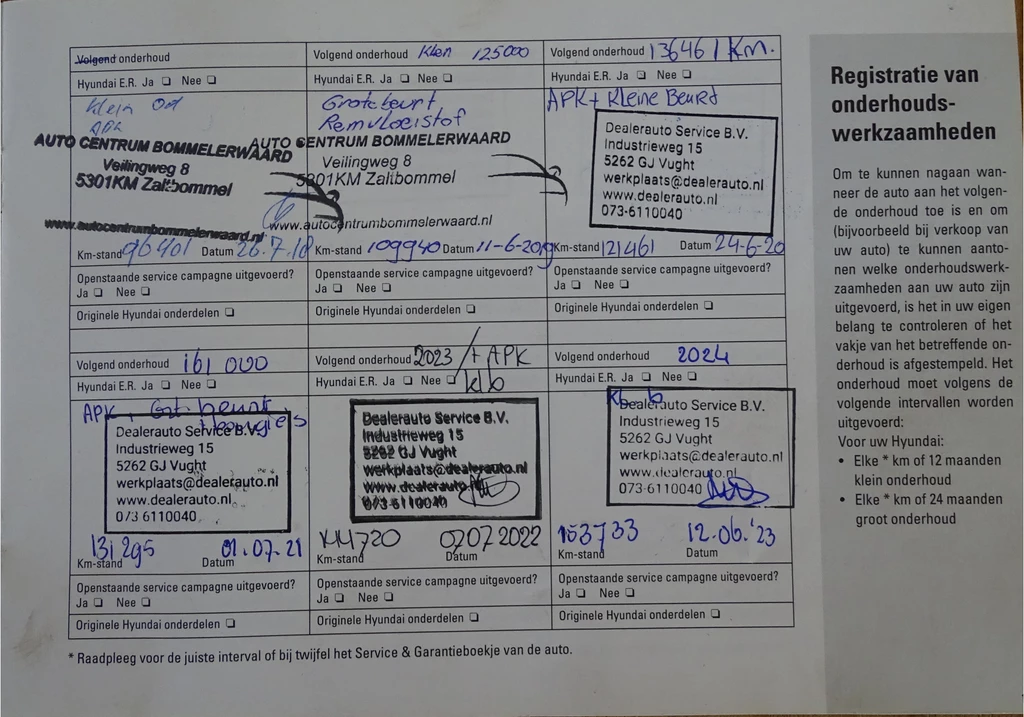 Volgend onderhoud
Hyundai E.R. Ja ☐ Nee ☐
Klein Ond
APK
AUTO CENTRUM BOMMELERWAARD
Veilingweg 8
5301KM Zaltbommel
www.autocentrumbommelerwaard.nl
Km-stand 96401 Datum 26.7.18
Openstaande service campagne uitgevoerd?
Ja ☐ Nee ☐
Originele Hyundai onderdelen ☐
Volgend onderhoud Klein 125000
Hyundai E.R. Ja ☐ Nee ☐
Grote beurt
Remvloeistof
AUTO CENTRUM BOMMELERWAARD
Veilingweg 8
5301KM Zaltbommel
www.autocentrumbommelerwaard.nl
Km-stand 109940 Datum 11-6-2019
Openstaande service campagne uitgevoerd?
Ja ☐ Nee ☐
Originele Hyundai onderdelen ☐
Volgend onderhoud 136461 Km.
Hyundai E.R. Ja ☐ Nee ☐
APK + Kleine Beurt
Dealerauto Service B.V.
Industrieweg 15
5262 GJ Vught
werkplaats@dealerauto.nl
www.dealerauto.nl
073-6110040
Km-stand 121461 Datum 24-6-20
Openstaande service campagne uitgevoerd?
Ja ☐ Nee ☐
Originele Hyundai onderdelen ☐
Volgend onderhoud 161 000
Hyundai E.R. Ja ☐ Nee ☐
APK, Grt. beurt,
Dealerauto Service B.V.
Industrieweg 15
5262 GJ Vught
werkplaats@dealerauto.nl
www.dealerauto.nl
073 6110040
131295 01.07.21
Km-stand Datum
Openstaande service campagne uitgevoerd?
Ja ☐ Nee ☐
Originele Hyundai onderdelen ☐
Volgend onderhoud 2023 / + APK
Hyundai E.R. Ja ☐ Nee ☐ klb
Dealerauto Service B.V.
Industrieweg 15
5262 GJ Vught
werkplaats@dealerauto.nl
www.dealerauto.nl
073-6110040
144720 07072022
Km-stand Datum
Openstaande service campagne uitgevoerd?
Ja ☐ Nee ☐
Originele Hyundai onderdelen ☐
Volgend onderhoud 2024
Hyundai E.R. Ja ☐ Nee ☐
Dealerauto Service B.V.
Industrieweg 15
5262 GJ Vught
werkplaats@dealerauto.nl
www.dealerauto.nl
073-6110040
153733 12.06.'23
Km-stand Datum
Openstaande service campagne uitgevoerd?
Ja ☐ Nee ☐
Originele Hyundai onderdelen ☐
* Raadpleeg voor de juiste interval of bij twijfel het Service & Garantieboekje van de auto.
Registratie van
onderhouds-
werkzaamheden
Om te kunnen nagaan wan-
neer de auto aan het volgen-
de onderhoud toe is en om
(bijvoorbeeld bij verkoop van
uw auto) te kunnen aanto-
nen welke onderhoudswerk-
zaamheden aan uw auto zijn
uitgevoerd, is het in uw eigen
belang te controleren of het
vakje van het betreffende on-
derhoud is afgestempeld. Het
onderhoud moet volgens de
volgende intervallen worden
uitgevoerd:
Voor uw Hyundai:
• Elke * km of 12 maanden
klein onderhoud
• Elke * km of 24 maanden
groot onderhoud